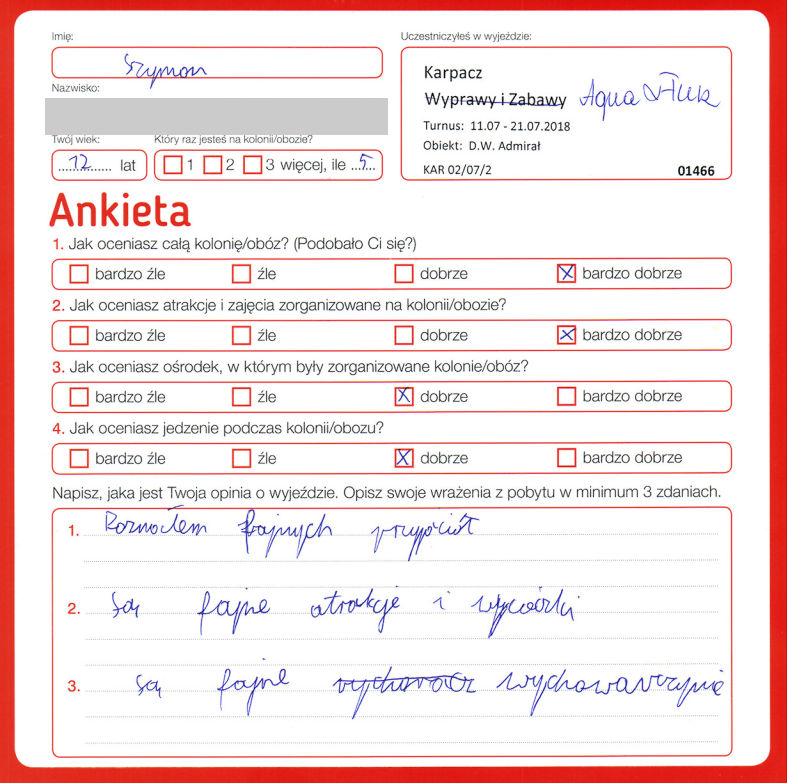 Imię:
Szymon
Nazwisko:
Twój wiek:
12 lat
Który raz jesteś na kolonii/obozie?
1 2 3 więcej, ile 5
Uczestniczyłeś w wyjeździe:
Karpacz
Wyprawy i Zabawy Aqua
Turnus: 11.07 - 21.07.2018
Obiekt: D.W. Admirał
KAR 02/07/2 01466
Ankieta
1. Jak oceniasz całą kolonię/obóz? (Podobało Ci się?)
bardzo źle źle dobrze bardzo dobrze
2. Jak oceniasz atrakcje i zajęcia zorganizowane na kolonii/obozie?
bardzo źle źle dobrze bardzo dobrze
3. Jak oceniasz ośrodek, w którym były zorganizowane kolonie/obóz?
bardzo źle źle dobrze bardzo dobrze
4. Jak oceniasz jedzenie podczas kolonii/obozu?
bardzo źle źle dobrze bardzo dobrze
Napisz, jaka jest Twoja opinia o wyjeździe. Opisz swoje wrażenia z pobytu w minimum 3 zdaniach.
1. Poznałem fajnych przyjaciół
2. Są fajne atrakcje i wycieczki
3. Są fajne wychowawczynie